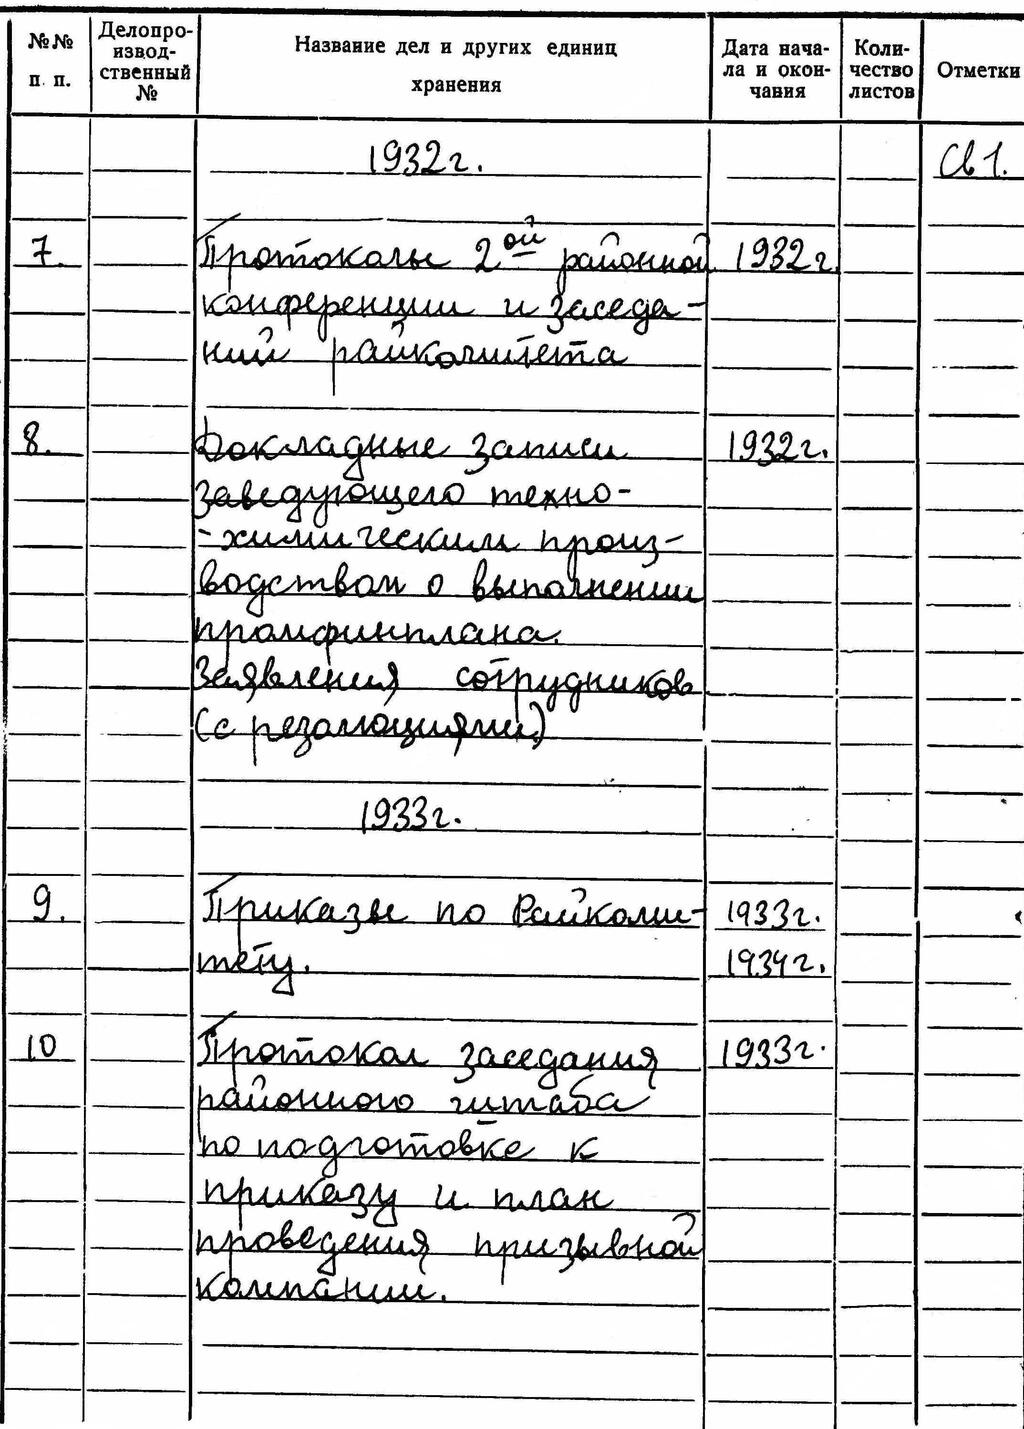 №№ п. п.
Делопро-
извод-
ственный
№
Название дел и других единиц
хранения
Дата нача-
ла и окон-
чания
Коли-
чество
листов
Отметки
1932г. Св 1.
7. Протоколы 2ой районной 1932г.
конференции и заседа-
ний райкомитета
8. Докладные записи 1932г.
заведующего техно-
-химическим произ-
водством о выполнении
промфинплана.
Заявления сотрудников
(с резолюциями)
1933г.
9. Приказы по Райкоми- 1933г.
тету. 1934г.
10 Протокол заседания 1933г.
районного штаба
по подготовке к
приказу и план
проведения призывной
компании.